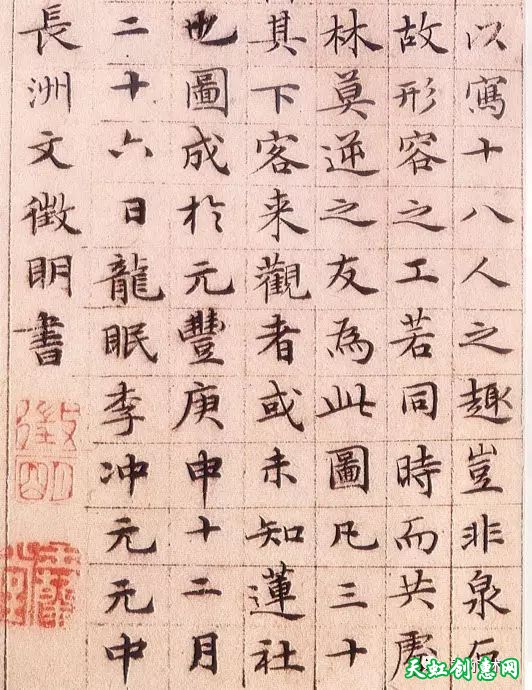 以寫十八人之趣豈非泉石
故形容之工若同時而共處
林莫逆之友為此圖凡三十
其下客来觀者或未知蓮社
也圖成於元豐庚申十二月
二十六日龍眠李冲元元中
長洲文徵明書
徵明
天虹创意网